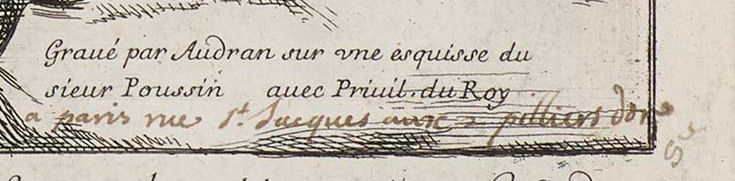 Graué par Audran sur vne esquisse du
sieur Poussin auec Priuil. du Roy
a paris rue S.t Jacques aux 2 pilliers dor